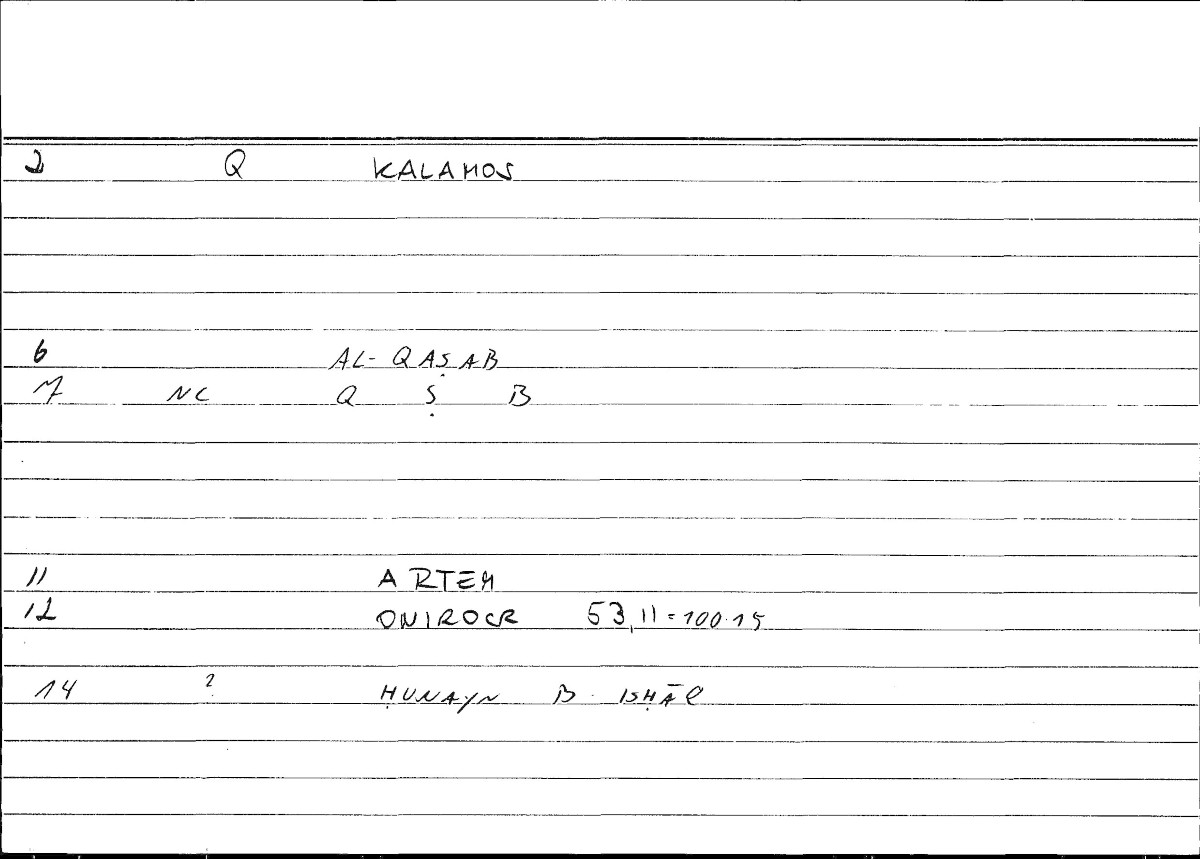 2 Q KALAMOS
6 AL-QAṢAB
7 NC Q Ṣ B
11 ARTEM
12 ONIROCR 53,11=100.15
14 ? ḤUNAYN B. ISḤĀQ